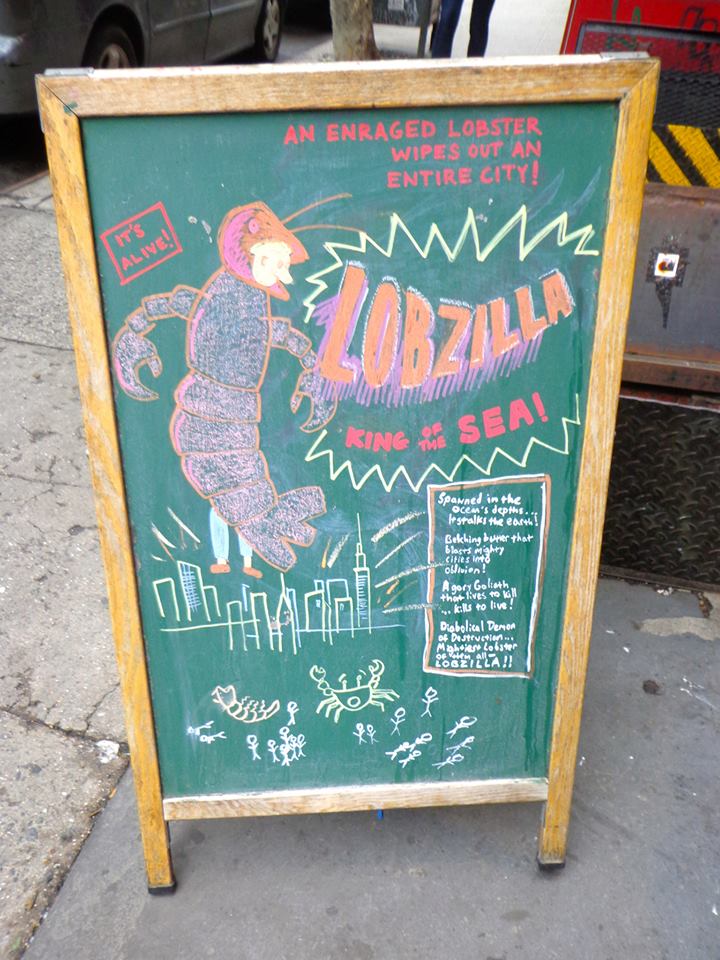 AN ENRAGED LOBSTER
WIPES OUT AN
ENTIRE CITY!
IT'S
ALIVE!
LOBZILLA
KING OF THE SEA!
Spawned in the
ocean's depths...
It stalks the earth!
Belching butter that
blasts mighty
cities into
oblivion!
A gory Goliath
that lives to kill
... kills to live!
Diabolical Demon
of Destruction...
Mightiest Lobster
of them all-
LOBZILLA!!